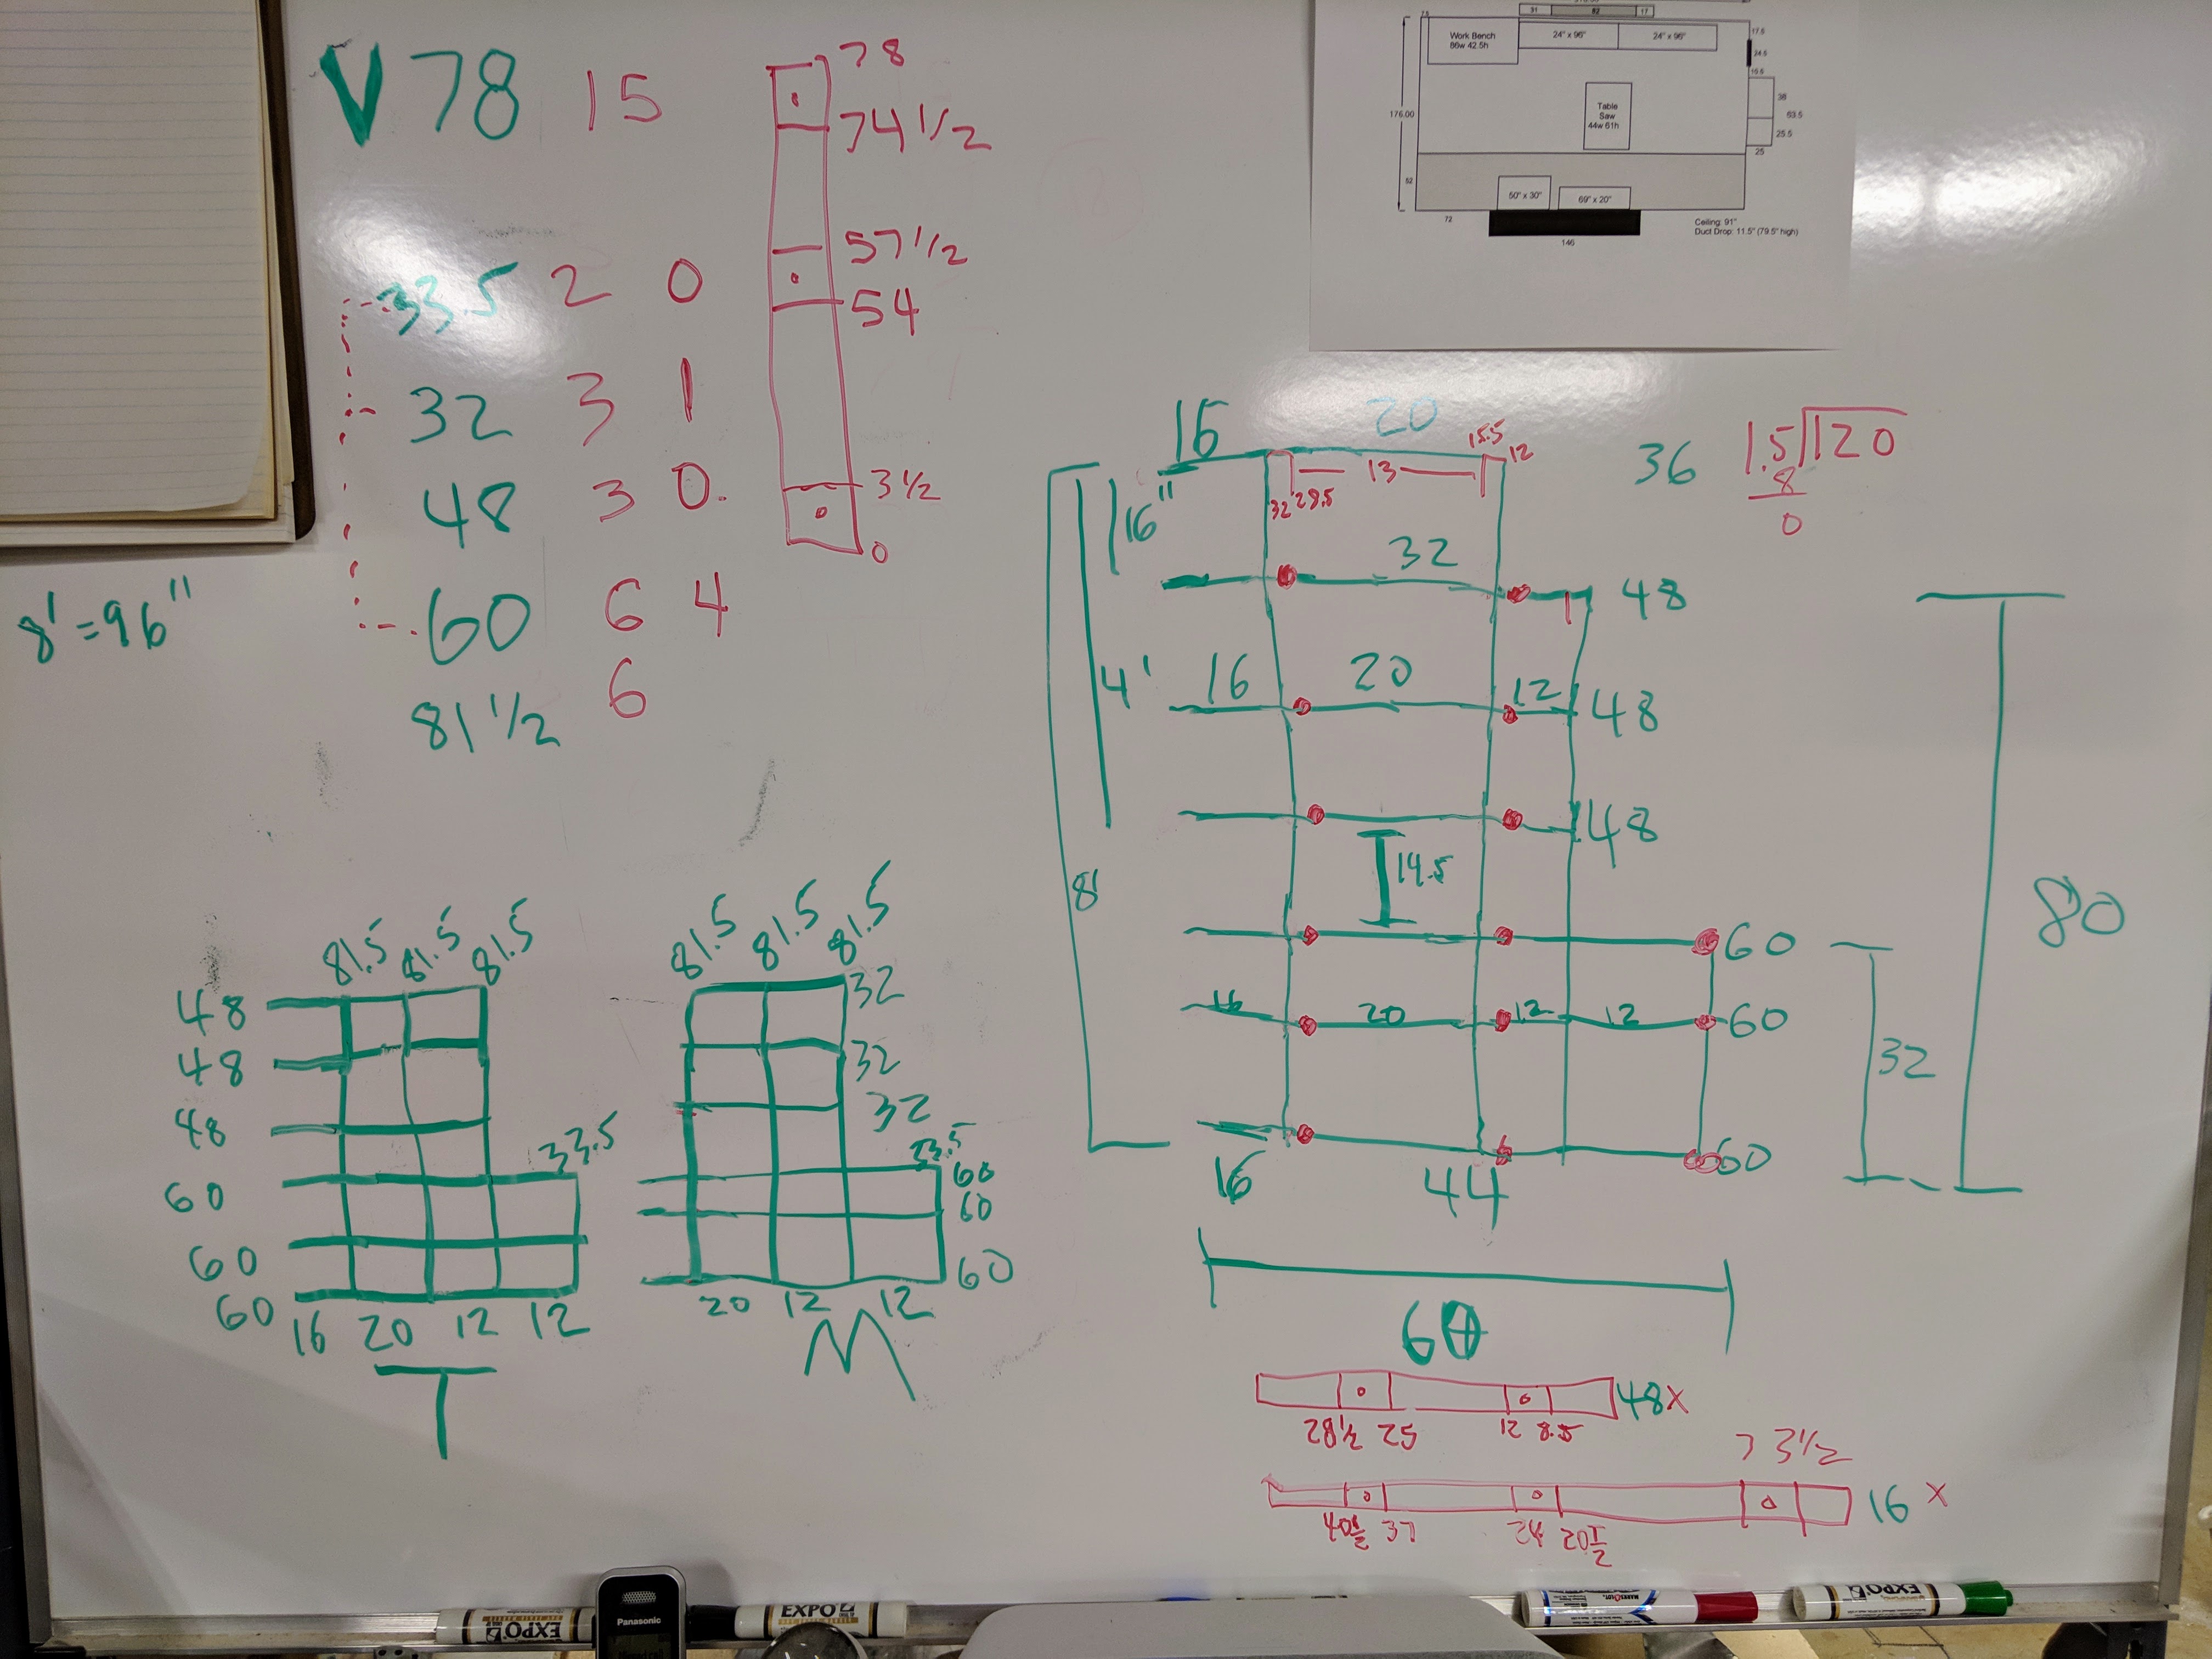 V 78 15
33.5 2 0
32 3 1
48 3 0.
60 6 4
81 1/2 6
8' = 96"
78
74 1/2
57 1/2
54
3 1/2
0
31 82 17
7.5
Work Bench
86w 42.5h
24" x 96"
24" x 96"
17.5
34.5
19.5
176.00
Table
Saw
44w 61h
38
63.5
25.5
25
52
50" x 30"
69" x 20"
72
146
Ceiling: 91"
Duct Drop: 11.5" (79.5" high)
16 20 15.5 12 36
1.5)120
8
0
13
32 28.5
16"
32 48
4' 16 20 12 48
48
14.5
8'
60
16 20 12 12 60
60
16 44
32
80
60
81.5 81.5 81.5
48
48
48
33.5
60
60
60
16 20 12 12
T
81.5 81.5 81.5
32
32
32
33.5
60
60
60
20 12 12
M
48x
28 1/2 25 12 8.5
7 3 1/2
16 x
40 1/2 37 24 20 1/2
EXPO
Panasonic
EXPO
EXPO